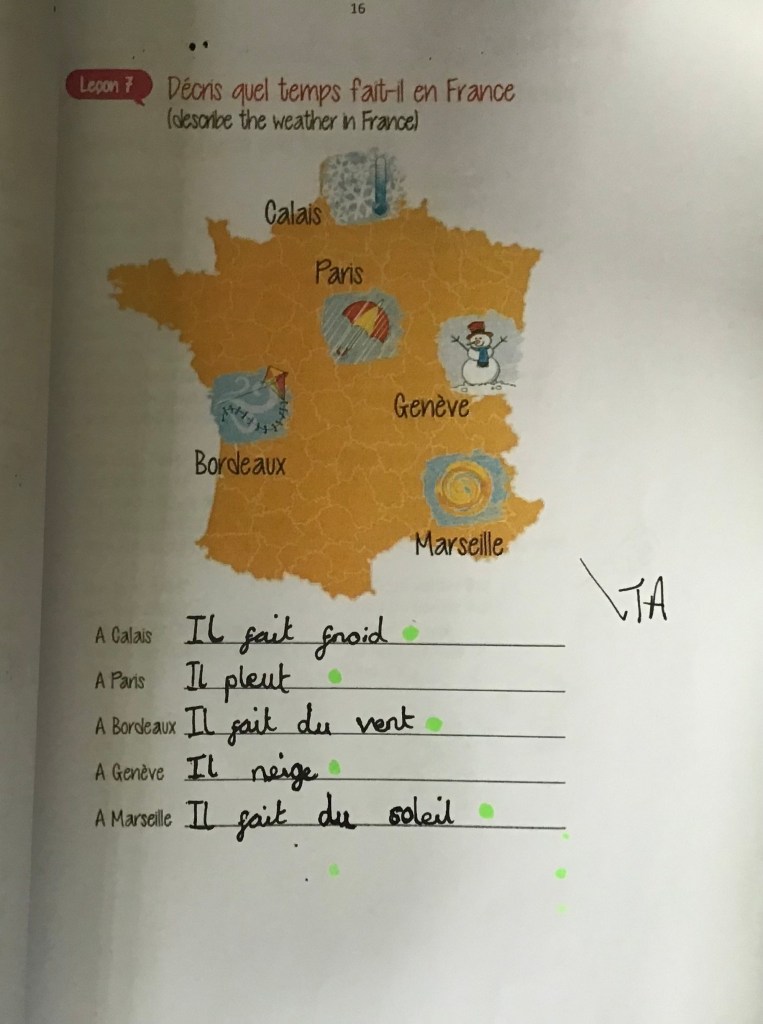 16
Leçon 7 Décris quel temps fait-il en France
(describe the weather in France)
Calais
Paris
Genève
Bordeaux
Marseille
TA
A Calais Il fait froid
A Paris Il pleut
A Bordeaux Il fait du vent
A Genève Il neige
A Marseille Il fait du soleil